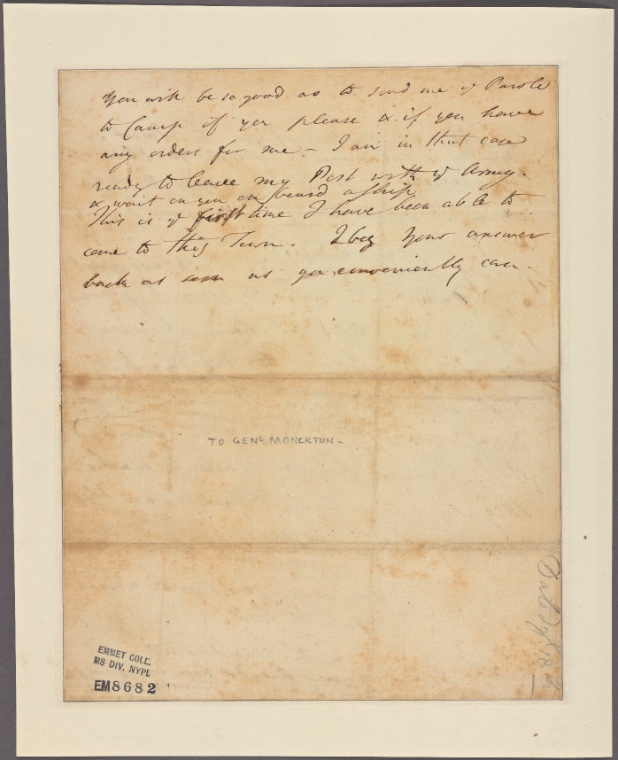 you will be so good as to send me ye Parole
to Camp if you please & if you have
any orders for me - I am in that case
ready to leave my Post with ye Army.
& wait on you on board a ship
This is ye first time I have been able to
come to this Town. I beg your answer
back as soon as you conveniently can.
TO GENL. MONCKTON -
EMMET COLL.
MS DIV. NYPL
EM8682